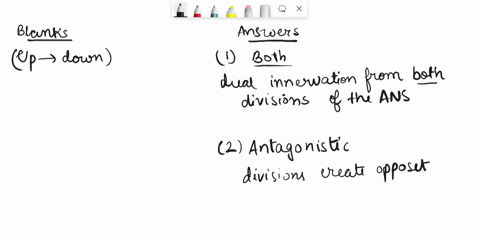 Blanks
(Up → down)
Answers
(1) Both
dual innervation from both
divisions of the ANS
(2) Antagonistic
divisions create opposet